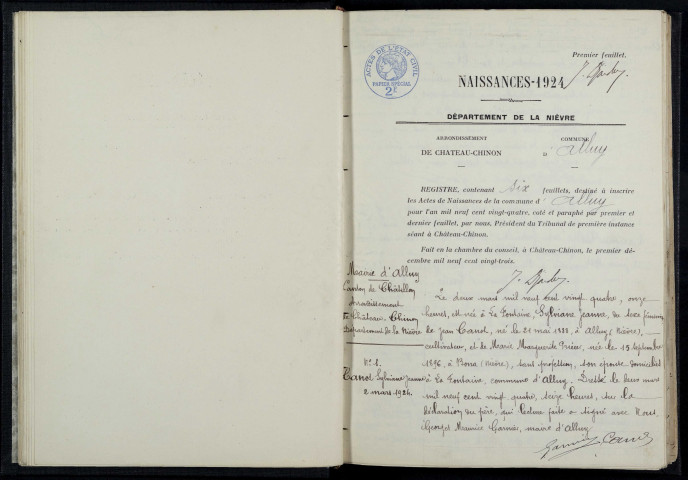 Premier feuillet.
ACTES DE L'ETAT CIVIL
PAPIER SPECIAL
2F
NAISSANCES-1924
DÉPARTEMENT DE LA NIÈVRE
ARRONDISSEMENT
DE CHATEAU-CHINON
COMMUNE
D'Alluy
REGISTRE, contenant six feuillets, destiné à inscrire
les Actes de Naissances de la commune d'Alluy
pour l'an mil neuf cent vingt-quatre, coté et paraphé par premier et
dernier feuillet, par nous, Président du Tribunal de première instance
séant à Château-Chinon.
Fait en la chambre du conseil, à Château-Chinon, le premier dé-
cembre mil neuf cent vingt-trois.
Mairie d'Alluy
Canton de Châtillon
Arrondissement
de Château-Chinon
Département de la Nièvre
N° 1.
Canot Sylviane Jeanne
2 mars 1924.
Le deux mars mil neuf cent vingt quatre, onze
heures, est née à La Fontaine, Sylviane Jeanne, du sexe féminin
de Jean Canot, né le 21 mai 1888, à Alluy (Nièvre),
cultivateur, et de Marie Marguerite née le 15 septembre
1896, à (Nièvre), sans profession, son épouse domiciliés
à La Fontaine, commune d'Alluy. Dressé le deux mars
mil neuf cent vingt quatre, seize heures, sur la
déclaration du père, qui lecture faite a signé avec Nous
Georges Maurice maire d'Alluy
Canot